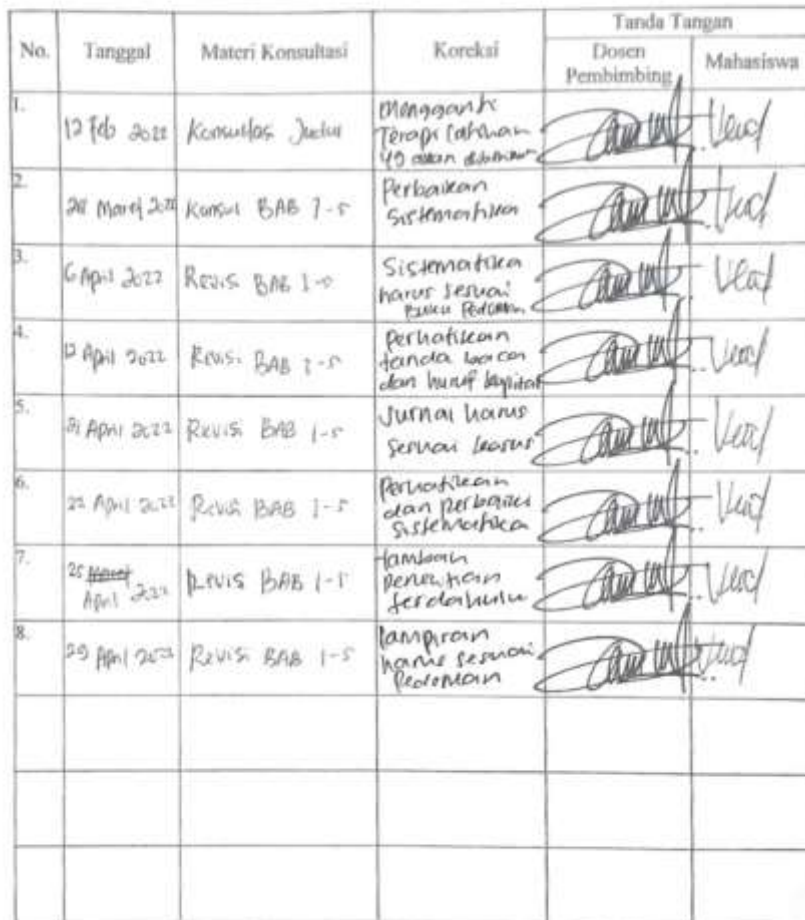 No. Tanggal Materi Konsultasi Koreksi Tanda Tangan
Dosen Pembimbing Mahasiswa
1. 12 Feb 2022 Konsultasi Judul Mengganti
Terapi Latihan
yg akan
2. 28 Maret 2022 Konsul BAB 1-5 Perbaikan
Sistematika
3. 6 April 2022 Revisi BAB 1-5 Sistematika
harus sesuai
Buku Pedoman
4. 12 April 2022 Revisi BAB 1-5 Perhatikan
tanda baca
dan huruf kapital
5. 21 April 2022 Revisi BAB 1-5 Jurnal harus
sesuai kasus
6. 22 April 2022 Revisi BAB 1-5 Perhatikan
dan perbaiki
sistematika
7. 25 April 2022 Revisi BAB 1-5 tambah
penelitian
terdahulu
8. 29 April 2022 Revisi BAB 1-5 lampiran
harus sesuai
Pedoman